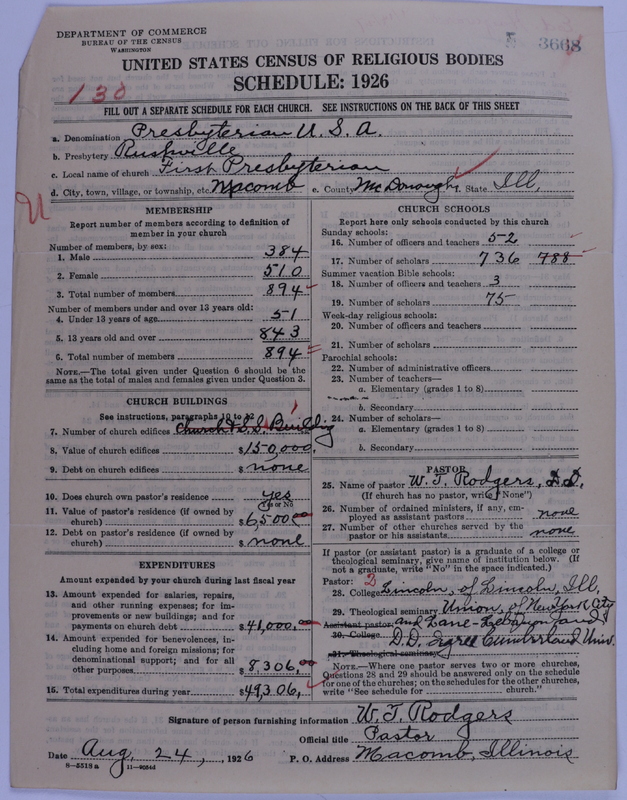 DEPARTMENT OF COMMERCE
BUREAU OF THE CENSUS
WASHINGTON
3668
UNITED STATES CENSUS OF RELIGIOUS BODIES
SCHEDULE: 1926
130
FILL OUT A SEPARATE SCHEDULE FOR EACH CHURCH. SEE INSTRUCTIONS ON THE BACK OF THIS SHEET
a. Denomination Presbyterian U.S.A.
b. Presbytery Rushville
c. Local name of church First Presbyterian
d. City, town, village, or township, etc. Macomb e. County McDonough f. State Ill,
MEMBERSHIP
Report number of members according to definition of
member in your church
Number of members, by sex:
1. Male 384
2. Female 510
3. Total number of members 894
Number of members under and over 13 years old:
4. Under 13 years of age 51
5. 13 years old and over 843
6. Total number of members 894
NOTE.—The total given under Question 6 should be
same as the total of males and females given under Question 3.
CHURCH BUILDINGS
See instructions, paragraphs 10 to 12
7. Number of church edifices Church & S.S. Building
8. Value of church edifices $150,000.
9. Debt on church edifices $ none
10. Does church own pastor's residence yes
(Yes or No)
11. Value of pastor's residence (if owned by
church) $6500.00
12. Debt on pastor's residence (if owned by
church) $ none
EXPENDITURES
Amount expended by your church during last fiscal year
13. Amount expended for salaries, repairs,
and other running expenses; for im-
provements or new buildings; and for
payments on church debt $41,000.00
14. Amount expended for benevolences, in-
cluding home and foreign missions; for
denominational support; and for all
other purposes $8306.00
15. Total expenditures during year $49,306.
CHURCH SCHOOLS
Report here only schools conducted by this church
Sunday schools:
16. Number of officers and teachers 52
17. Number of scholars 736 788
Summer vacation Bible schools:
18. Number of officers and teachers 3
19. Number of scholars 75
Week-day religious schools:
20. Number of officers and teachers
21. Number of scholars
Parochial schools:
22. Number of administrative officers
23. Number of teachers—
a. Elementary (grades 1 to 8)
b. Secondary
24. Number of scholars—
a. Elementary (grades 1 to 8)
b. Secondary
PASTOR
25. Name of pastor W. T. Rodgers, D.D.
(If church has no pastor, write "None")
26. Number of ordained ministers, if any, em-
ployed as assistant pastors none
27. Number of other churches served by the
pastor or his assistants none
If pastor (or assistant pastor) is a graduate of a college or
theological seminary, give name of institution below. (If
not a graduate, write "No" in the space indicated.)
Pastor: 2
28. College Lincoln, of Lincoln, Ill,
29. Theological seminary Union, of New York City
Assistant pastor: and Lane-Lebanon and
30. College D.D. degree Cumberland Univ.
31. Theological seminary
NOTE.—Where one pastor serves two or more churches,
Questions 28 and 29 should be answered only on the schedule
for one of the churches; on the schedules for the other churches,
write "See schedule for church."
Signature of person furnishing information W. T. Rodgers
Official title Pastor
Date Aug, 24, 1926 P. O. Address Macomb, Illinois
8—5518a